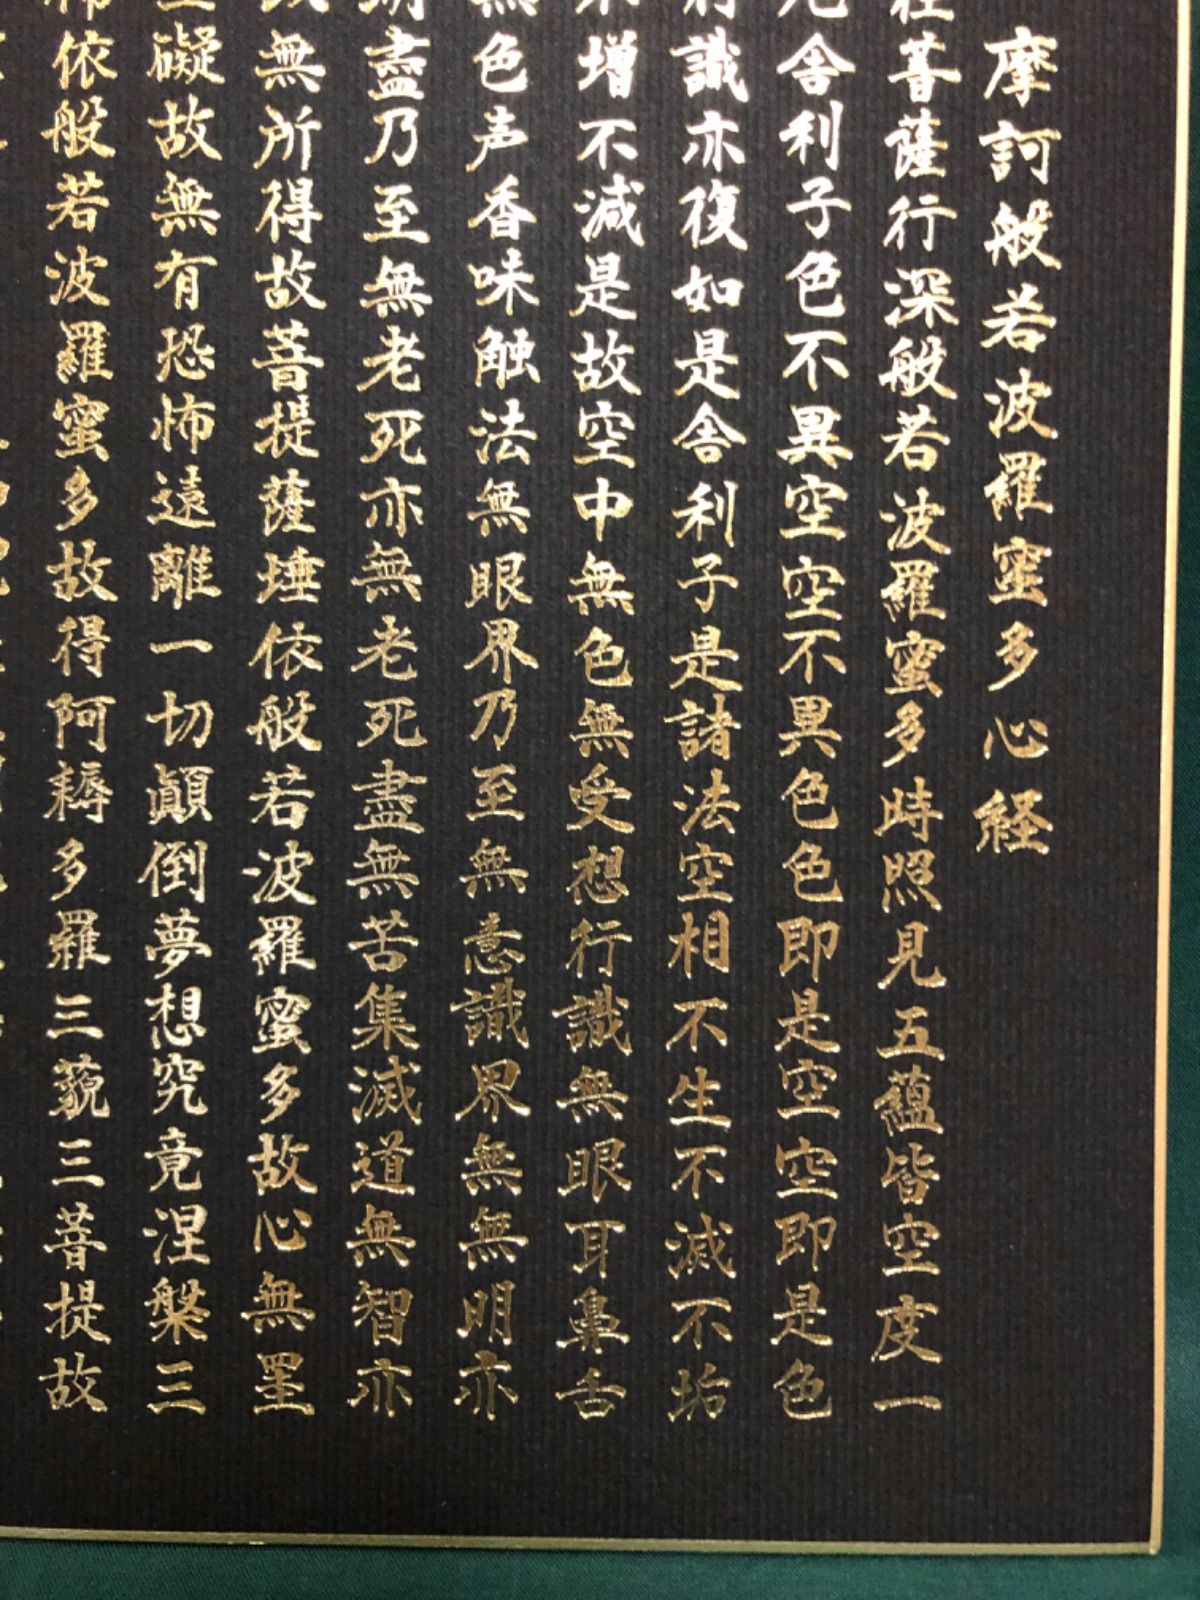 摩訶般若波羅蜜多心経
菩薩行深般若波羅蜜多時照見五蘊皆空度一
舎利子色不異空空不異色色即是空空即是色
識亦復如是舎利子是諸法空相不生不滅不垢
増不減是故空中無色無受想行識無眼耳鼻舌
色声香味触法無眼界乃至無意識界無無明亦
盡乃至無老死亦無老死盡無苦集滅道無智亦
無所得故菩提薩埵依般若波羅蜜多故心無罣
礙故無有恐怖遠離一切顛倒夢想究竟涅槃三
依般若波羅蜜多故得阿耨多羅三藐三菩提故